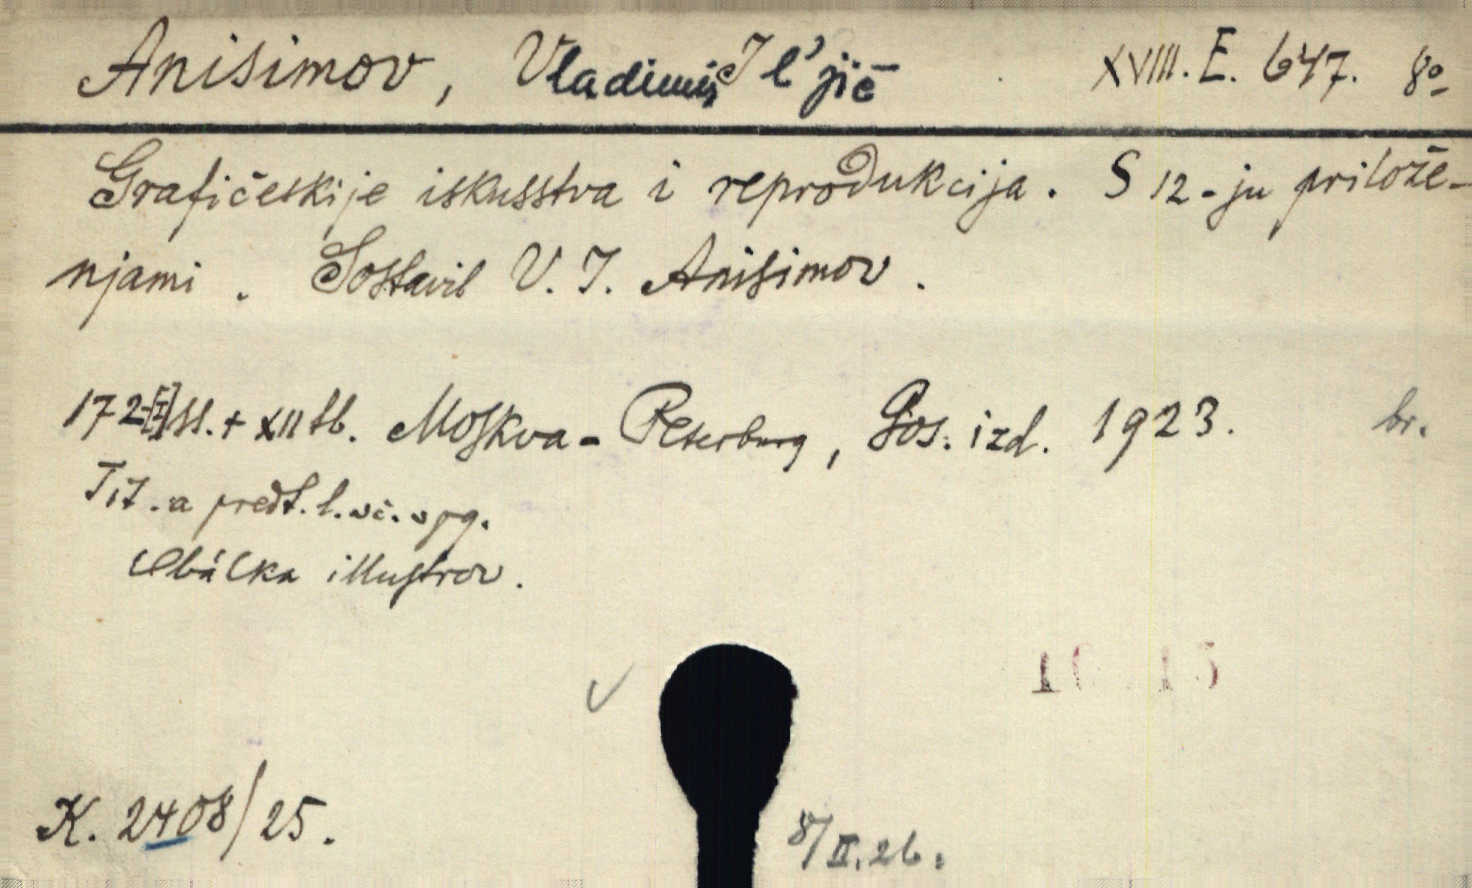 Anisimov, Vladimir Il'jič XVIII. E. 647. 8º
Grafičeskije iskusstva i reprodukcija. S 12-ju prilože-
njami. Sostavil V. I. Anisimov.
172 ss. + XII tb. Moskva - Peterburg, Gos. izd. 1923. br.
Tit. a předt. l. vč. v pg.
Obálka illustrov.
K. 2408/25.
8/II.26.